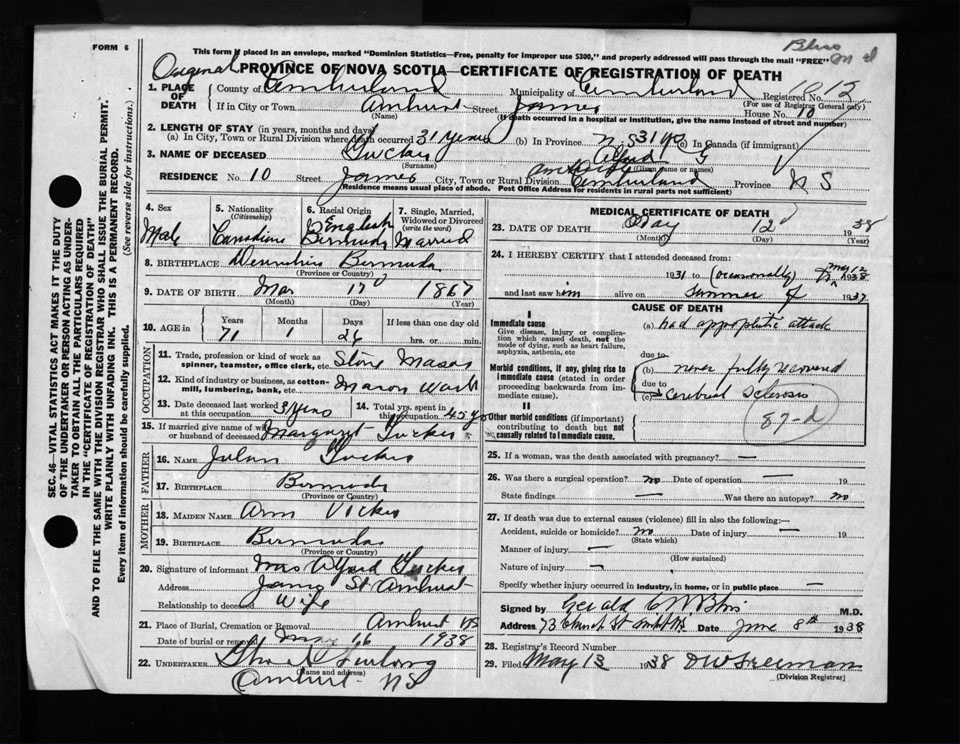 FORM 6
This form if placed in an envelope, marked "Dominion Statistics—Free, penalty for improper use $300," and properly addressed will pass through the mail "FREE"
Original PROVINCE OF NOVA SCOTIA—CERTIFICATE OF REGISTRATION OF DEATH
1. PLACE OF DEATH County of Cumberland Municipality of Cumberland Registered No.
(For use of Registrar General only)
If in City or Town Amherst Street James House No. 10
(Name) (If death occurred in a hospital or institution, give the name instead of street and number)
2. LENGTH OF STAY (in years, months and days)
(a) In City, Town or Rural Division where death occurred 31 years (b) In Province N S 31 yrs (c) In Canada (if immigrant)
3. NAME OF DECEASED Tucker Alfred G
(Surname) (Given name or names)
RESIDENCE No. 10 Street James City, Town or Rural Division Amherst Cumberland Province N S
(Residence means usual place of abode. Post Office Address for residents in rural parts not sufficient)
4. Sex Male
5. Nationality (Citizenship) Canadian
6. Racial Origin English Bermuda
7. Single, Married, Widowed or Divorced (write the word) Married
8. BIRTHPLACE Bermuda
(Province or Country)
9. DATE OF BIRTH Mar 17 1867
(Month) (Day) (Year)
10. AGE in Years 71 Months 1 Days 26 If less than one day old hrs. or min.
OCCUPATION
11. Trade, profession or kind of work as spinner, teamster, office clerk, etc. Stone Mason
12. Kind of industry or business, as cotton-mill, lumbering, bank, etc. Mason Work
13. Date deceased last worked at this occupation 3 years 14. Total yrs. spent in this occupation 45 yrs
15. If married give name of wife or husband of deceased Margaret Tucker
FATHER
16. Name Tucker
17. BIRTHPLACE Bermuda
(Province or Country)
MOTHER
18. MAIDEN NAME Ann
19. BIRTHPLACE Bermuda
(Province or Country)
20. Signature of informant Mrs Alfred Tucker
Address James St Amherst
Relationship to deceased Wife
21. Place of Burial, Cremation or Removal Amherst NS
Date of burial or removal May 1938
22. UNDERTAKER Furlong
(Name and address)
Amherst NS
MEDICAL CERTIFICATE OF DEATH
23. DATE OF DEATH May 12 1938
(Month) (Day) (Year)
24. I HEREBY CERTIFY that I attended deceased from:
1931 (occasionally) to May 12 1938
and last saw him alive on Summer of 1937
CAUSE OF DEATH
I
Immediate cause
Give disease, injury or complication which caused death, not the mode of dying, such as heart failure, asphyxia, asthenia, etc
(a) had appoplectic attack
due to
Morbid conditions, if any, giving rise to immediate cause (stated in order proceeding backwards from immediate cause).
(b) never fully recovered
due to
(c) Cerebral Sclerosis
II
Other morbid conditions (if important) contributing to death but not causally related to immediate cause.
87-d
25. If a woman, was the death associated with pregnancy? —
26. Was there a surgical operation? no Date of operation — 19
State findings — Was there an autopsy? no
27. If death was due to external causes (violence) fill in also the following:—
Accident, suicide or homicide? no Date of injury — 19
(State which)
Manner of injury —
(How sustained)
Nature of injury —
Specify whether injury occurred in industry, in home, or in public place —
Signed by Gerald M.D.
Address 73 Church St Date June 8th 1938
28. Registrar's Record Number
29. Filed May 13 1938 DW Freeman
(Division Registrar)
SEC. 46—VITAL STATISTICS ACT MAKES IT THE DUTY
OF THE UNDERTAKER OR PERSON ACTING AS UNDERTAKER TO OBTAIN ALL THE PARTICULARS REQUIRED
IN THE "CERTIFICATE OF REGISTRATION OF DEATH"
AND TO FILE THE SAME WITH THE DIVISION REGISTRAR WHO SHALL ISSUE THE BURIAL PERMIT.
(See reverse side for instructions).
WRITE PLAINLY WITH UNFADING INK. THIS IS A PERMANENT RECORD.
Every item of information should be carefully supplied.